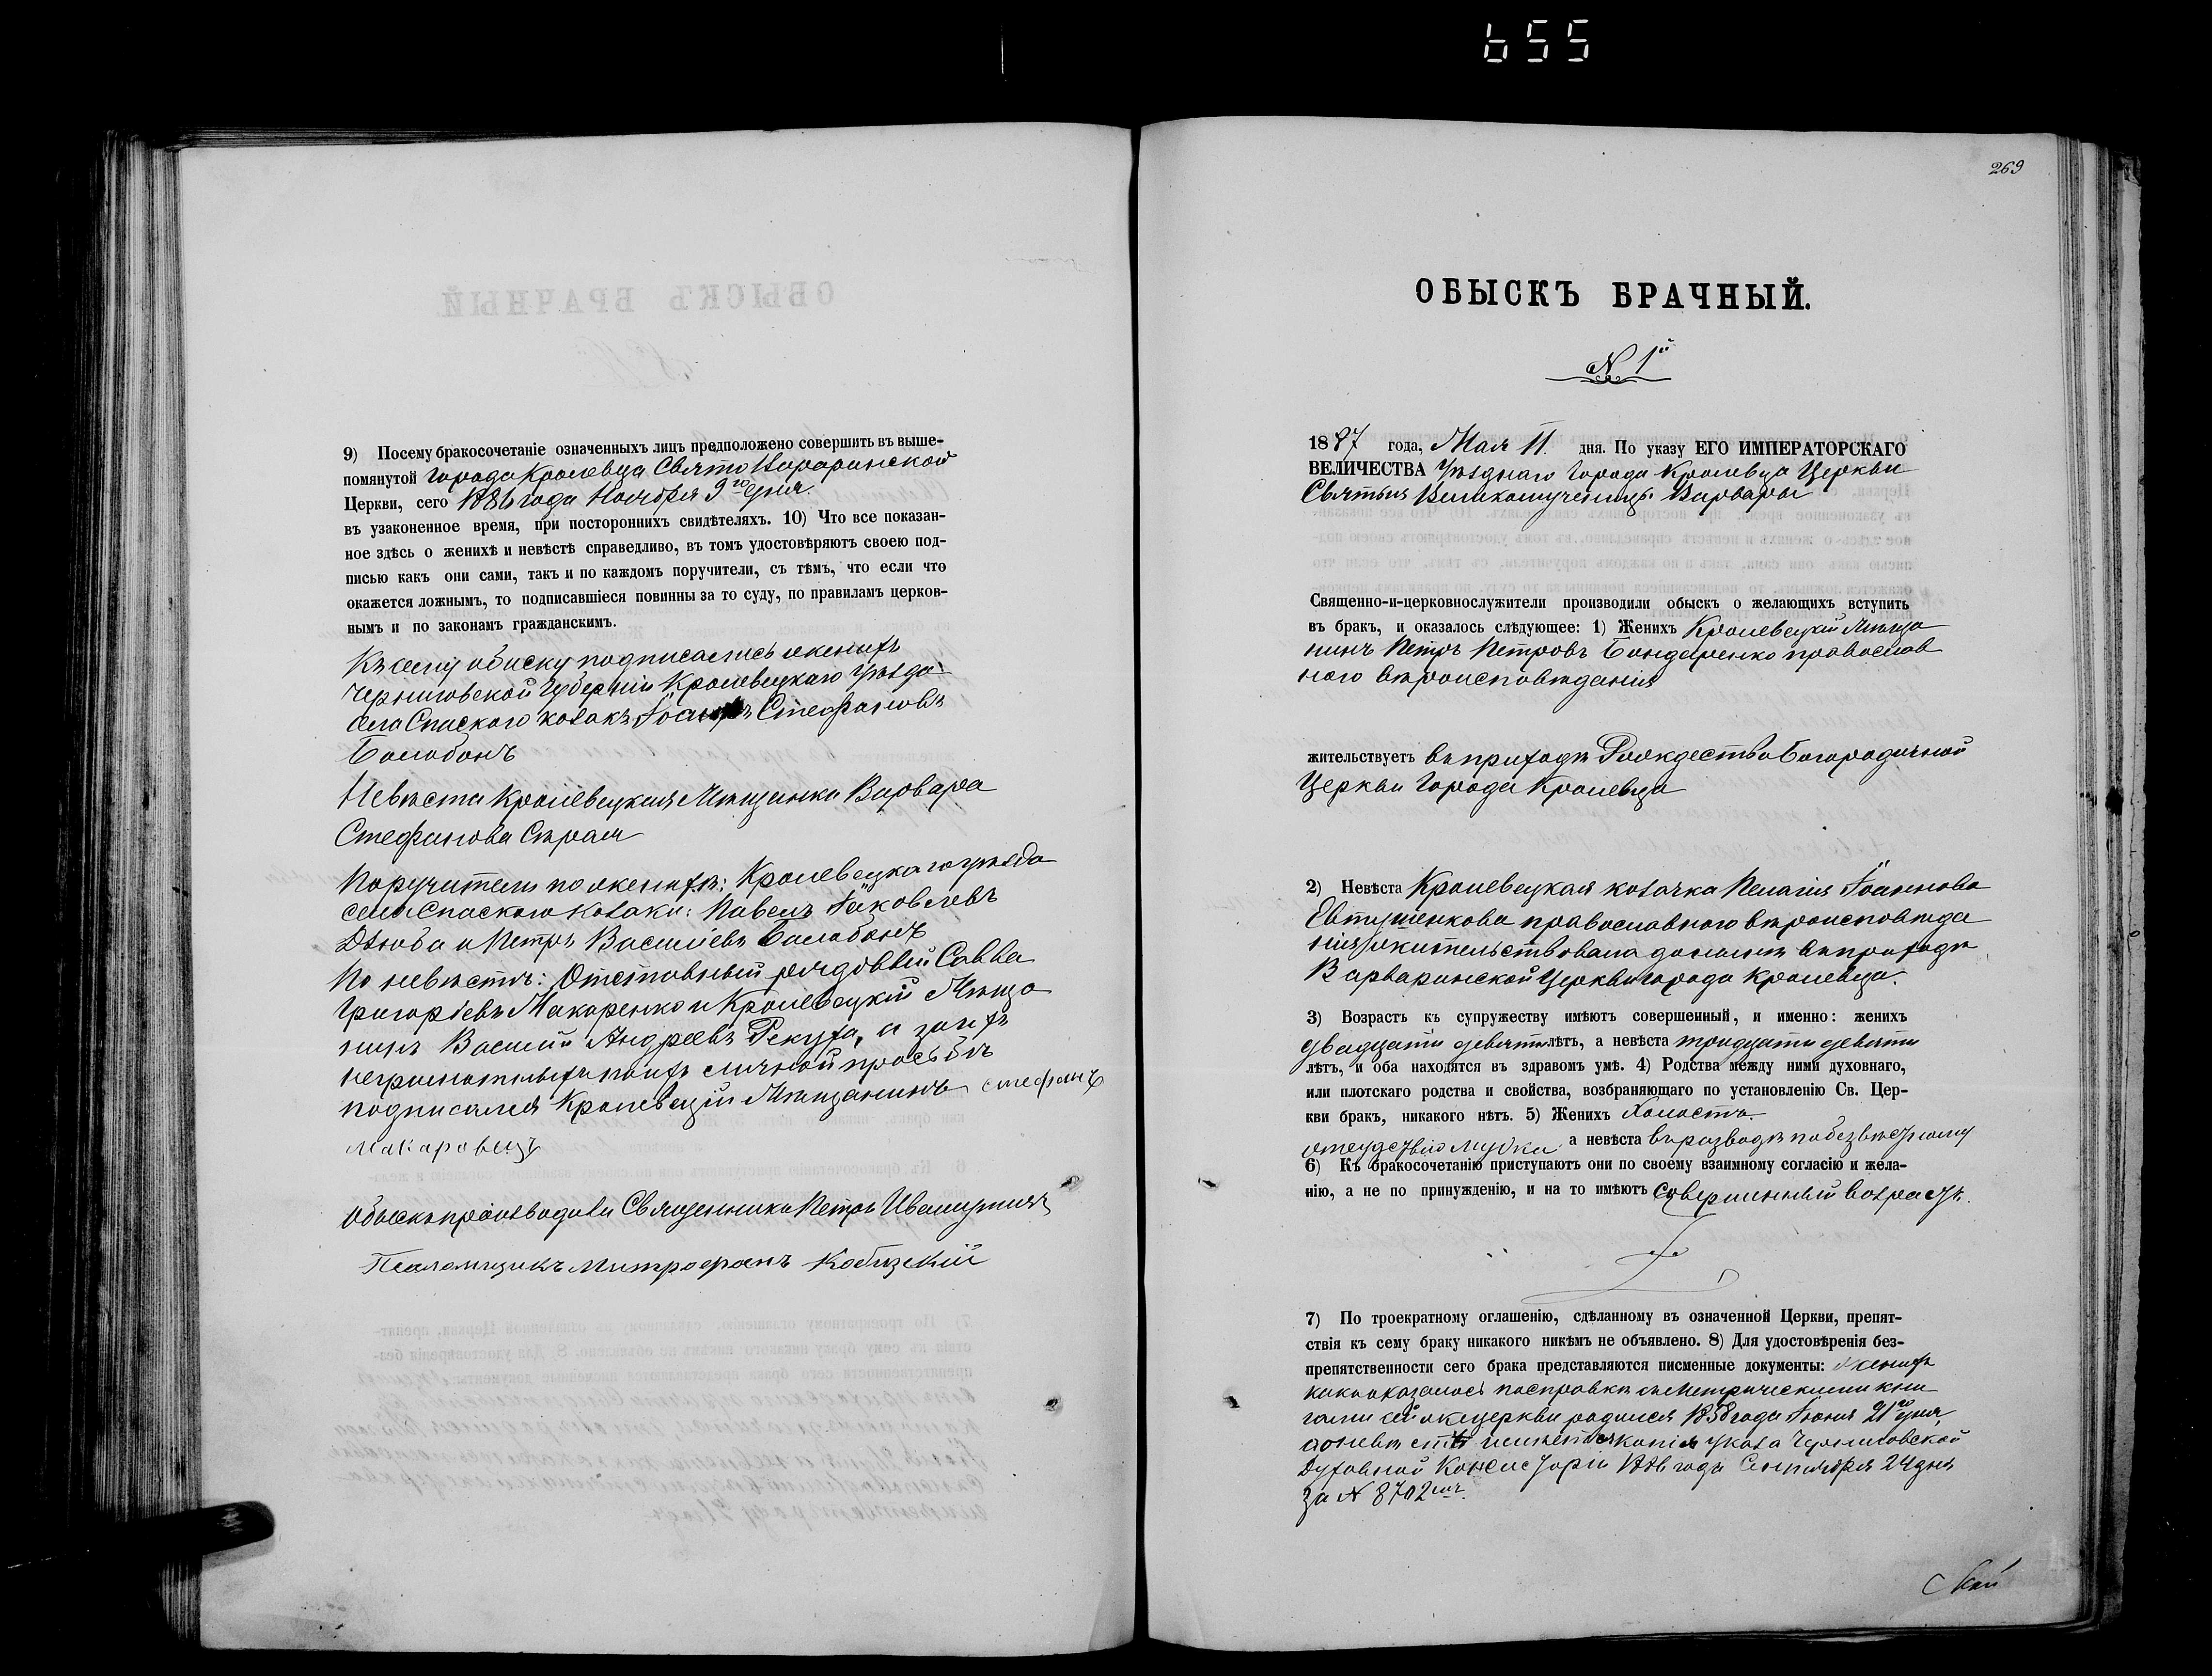 655
9) Посему бракосочетаніе означенныхъ лицъ предположено совершить въ выше-
помянутой города Кролевца Свято Варваринской
Церкви, сего 1886 года Ноября 9го дня.
въ узаконенное время, при постороннихъ свидѣтеляхъ. 10) Что все показан-
ное здѣсь о женихѣ и невѣстѣ справедливо, въ томъ удостовѣряютъ своею под-
писью какъ они сами, такъ и по каждомъ поручители, съ тѣмъ, что если что
окажется ложнымъ, то подписавшіеся повинны за то суду, по правиламъ церков-
нымъ и по законамъ гражданскимъ.
Къ сему обыску подписались женихъ
Черниговской Губерніи Кролевецкаго уѣзда
села Спаского козакъ Іоаннъ Стефановъ
Балабонъ
Невѣста Кролевецкая Мѣщанка Варвара
Стефанова
Поручители по женихѣ: Кролевецкаго уѣзда
села Спаского козаки: Павелъ Іаковлевъ
Дзюба и Петръ Васильевъ Балабонъ
По невѣстѣ: Отставный рядовый Савва
Григоріевъ Макаренко и Кролевецкій Мѣща
нинъ Василій Андреевъ Рекуха, а за нихъ
неграмотныхъ по ихъ личной просьбѣ
подписался Кролевецкій Мѣщанинъ Стефанъ
Макаровецъ
Обыскъ производили Священникъ Петръ
Псаломщикъ Митрофанъ
269
ОБЫСКЪ БРАЧНЫЙ.
N 1й
1887 года, Мая 11 дня. По указу ЕГО ИМПЕРАТОРСКАГО
ВЕЛИЧЕСТВА Уѣзднаго Города Кролевца Церкви
Святыя Великомученицы Варвары
Священно-и-церковнослужители производили обыскъ о желающихъ вступить
въ бракъ, и оказалось слѣдующее: 1) Женихъ Кролевецкій Мѣща
нинъ Петръ Петровъ Бондаренко православ
ного вѣроисповѣданія
жительствуетъ въ приходѣ Рождество Богородичной
Церкви Города Кролевца
2) Невѣста Кролевецкая козачка Пелагія Іоаннова
Евтушенкова православного вѣроисповѣда
нія жительствовала донынѣ въ приходѣ
Варваринской Церкви города Кролевца.
3) Возрастъ къ супружеству имѣютъ совершенный, и именно: женихъ
двадцати девяти лѣтъ, а невѣста тридцати девяти
лѣтъ, и оба находятся въ здравомъ умѣ. 4) Родства между ними духовнаго,
или плотскаго родства и свойства, возбраняющаго по установленію Св. Цер-
кви бракъ, никакого нѣтъ. 5) Женихъ Холостъ.
а невѣста въ разводѣ по безвѣстному
отсудствію мужа
6) Къ бракосочетанію приступаютъ они по своему взаимному согласію и жела-
нію, а не по принужденію, и на то имѣютъ Совершенный возрастъ.
7) По троекратному оглашенію, сдѣланному въ означенной Церкви, препят-
ствія къ сему браку никакого никѣмъ не объявлено. 8) Для удостовѣренія без-
препятственности сего брака представляются писменные документы: женихъ
какъ оказалось по справкѣ съ Метрическими кни
гами сей же церкви родился 1858 года Іюня 21го дня,
а о невѣстѣ имѣется копія указа Черниговской
Духовной Консисторіи 1886 года Сентября 24 дня
за N 8702мъ.